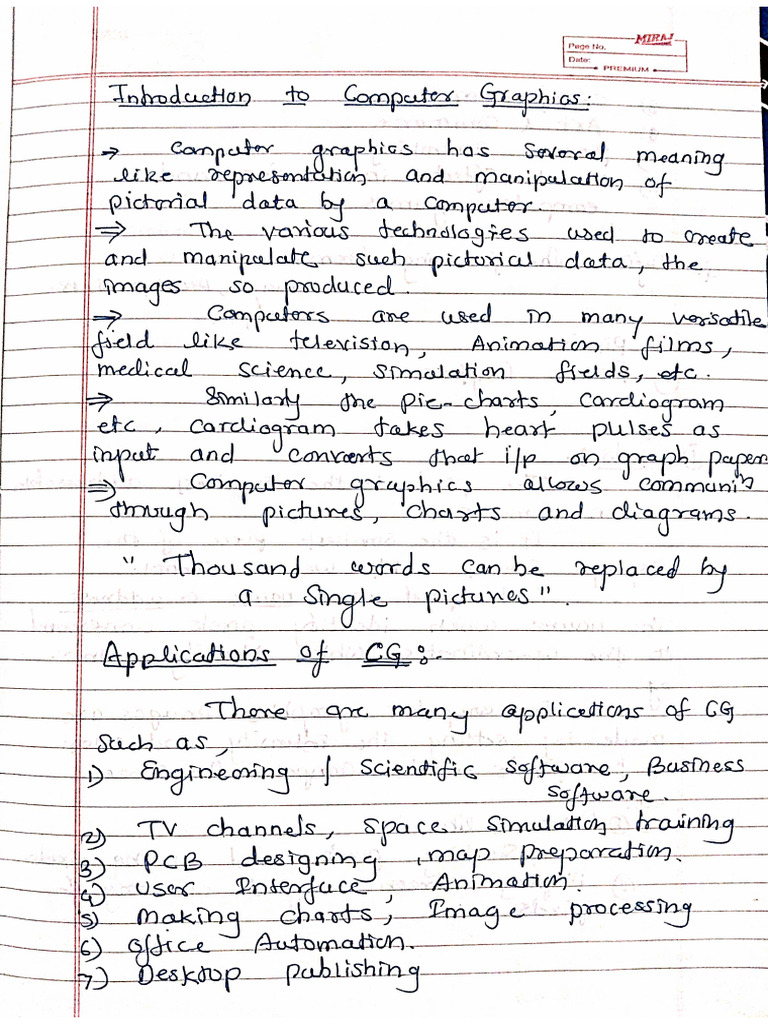 MIRAJ
Page No.
Date:
PREMIUM
Introduction to Computer Graphics:
→ Computer graphics has several meaning
like representation and manipulation of
pictorial data by a computer.
⇒ The various technologies used to create
and manipulate such pictorial data, the
images so produced.
⇒ Computers are used in many versatile
field like television, Animation films,
medical science, simulation fields, etc.
⇒ Similarly the pie-charts, Cardiogram
etc, cardiogram takes heart pulses as
input and converts that i/p on graph paper
⇒ Computer graphics allows communi
through pictures, charts and diagrams.
" Thousand words can be replaced by
a single pictures".
Applications of CG:-
There are many applications of CG
such as,
1) Engineering / Scientific Software, Business
Software.
2) TV channels, space simulation training
3) PCB designing, map preparation.
4) User Interface, Animation.
5) Making charts, Image processing
6) Office Automation.
7) Desktop publishing